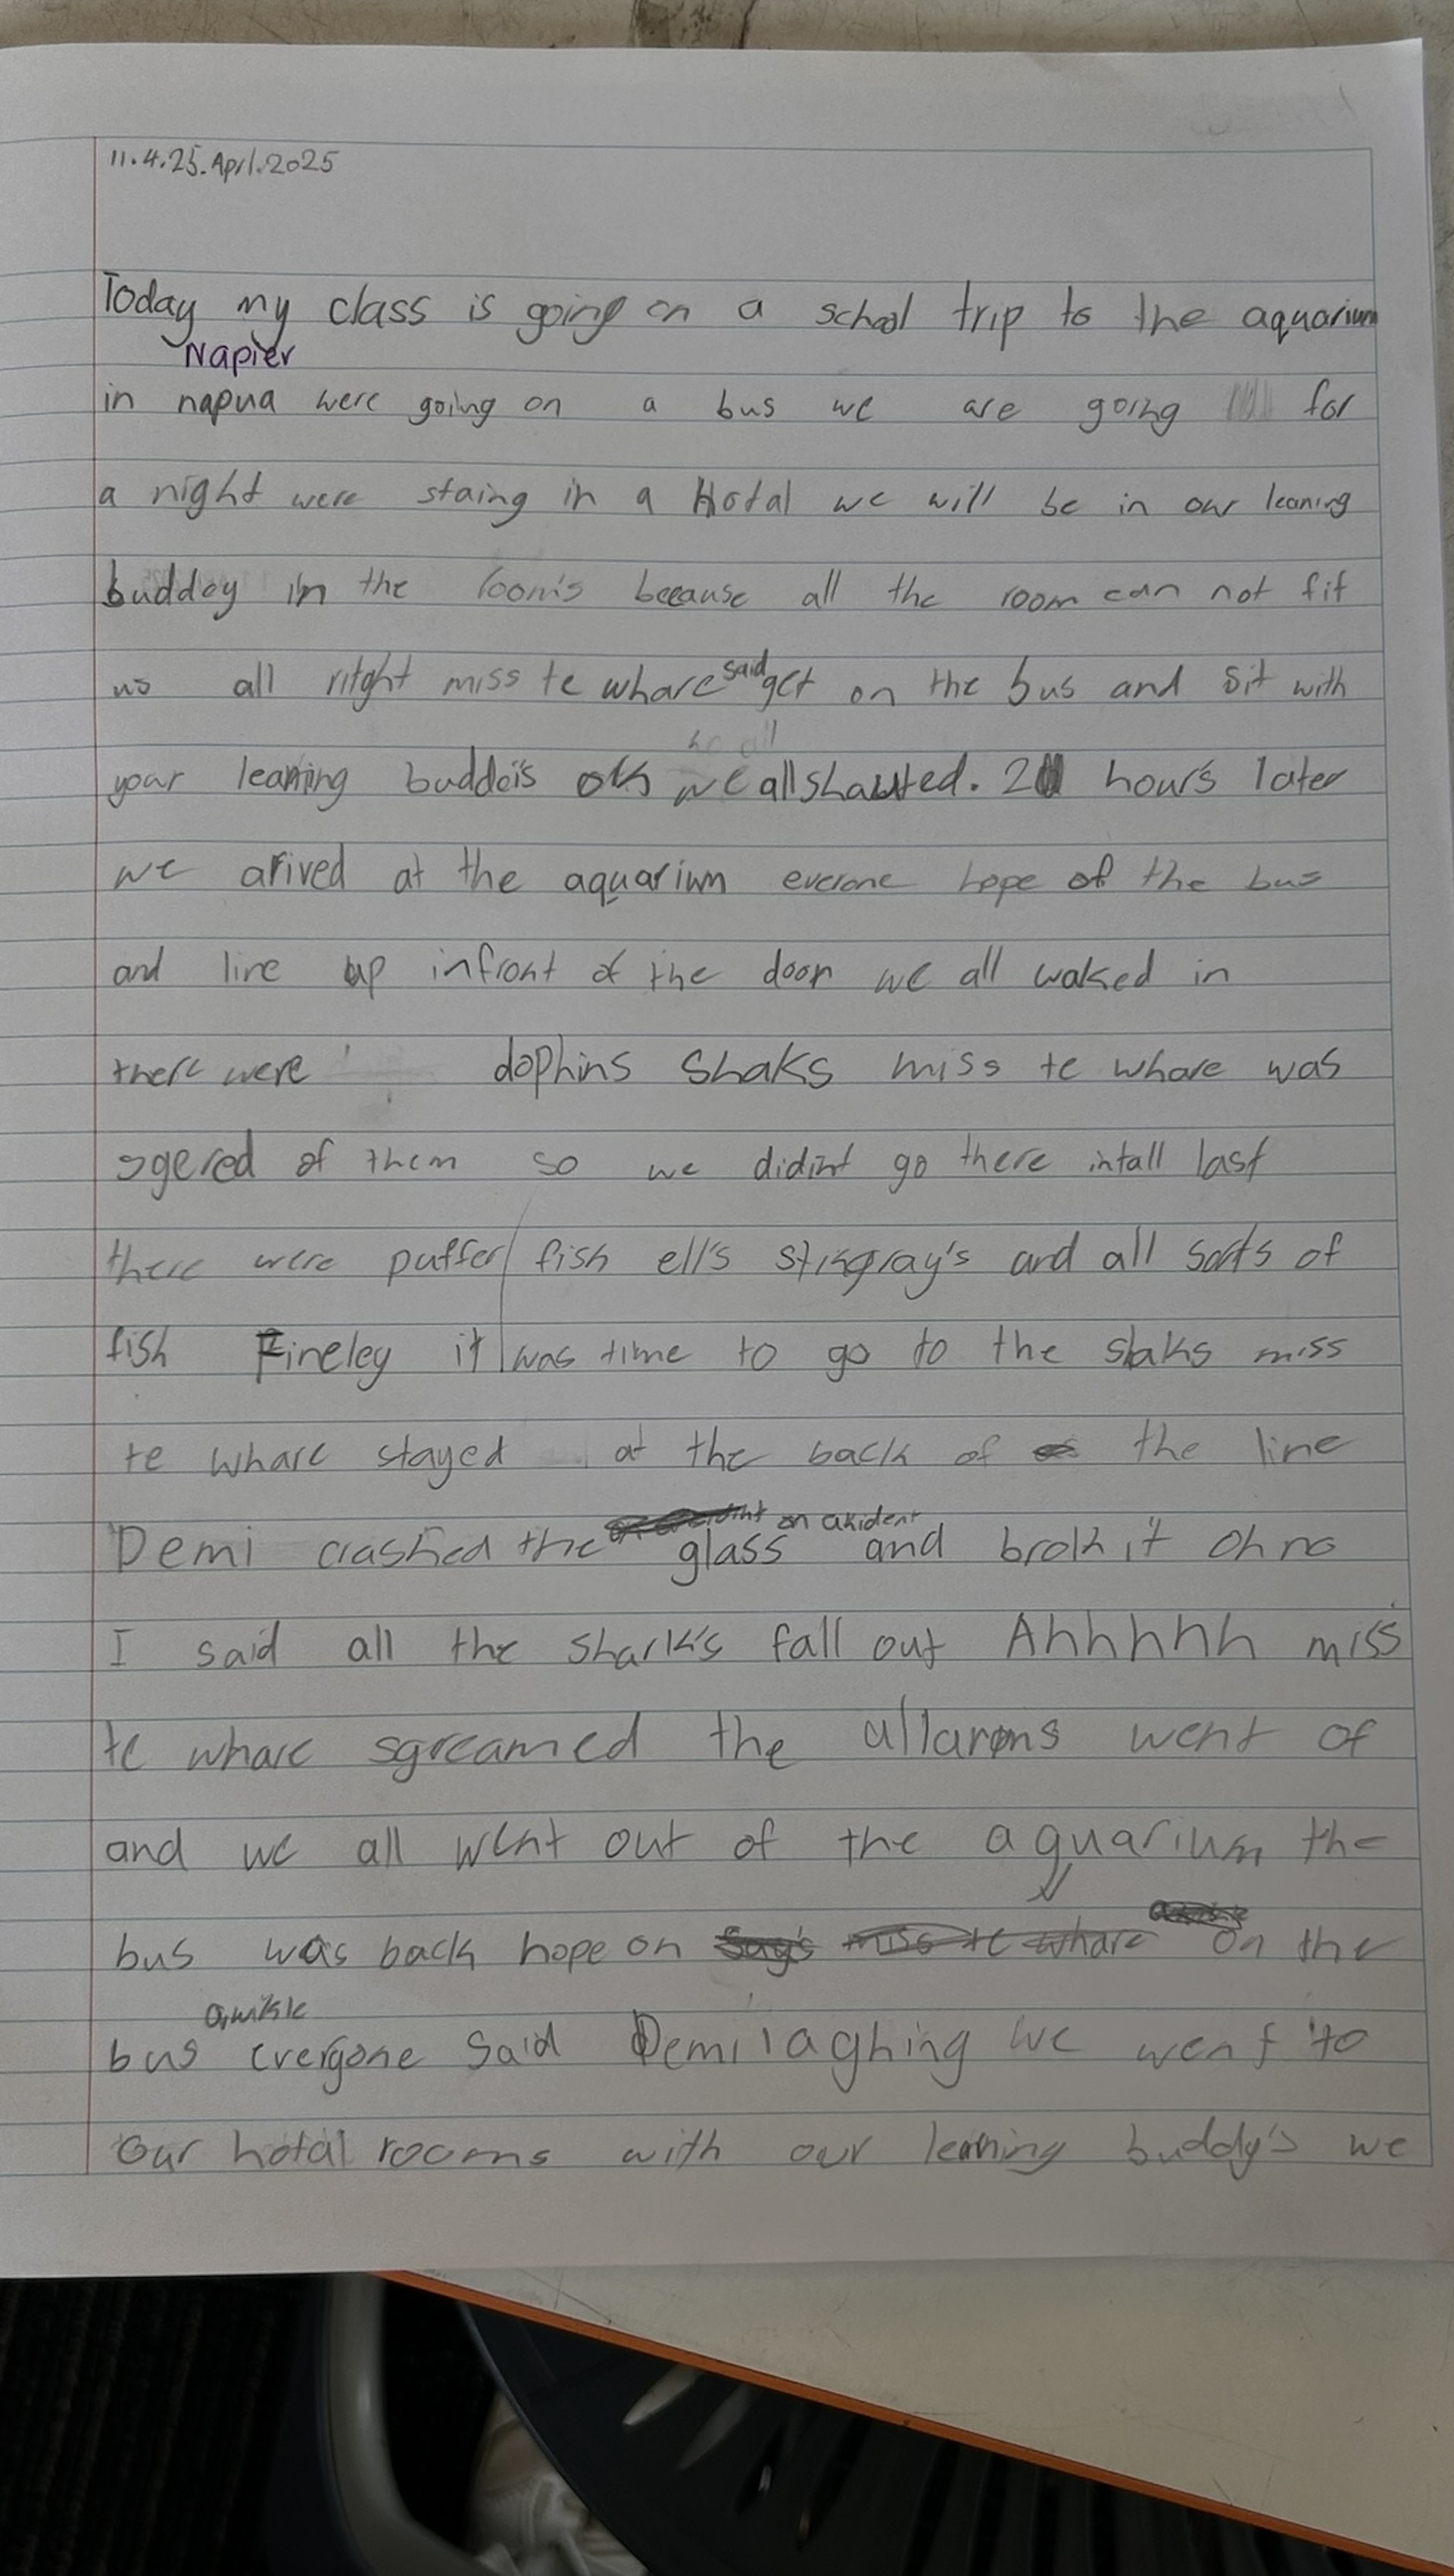 11.4.25.April.2025
Today my class is going on a school trip to the aquarium
Napier
in napua were going on a bus we are going for
a night were staing in a Hotal we will be in our leaning
buddoy in the room's because all the room can not fit
us all ritght miss te whare said get on the bus and sit with
your learning buddei's ok we all shauted. 2 hour's later
we arived at the aquarium everone hope of the bus
and line up infront of the door we all walked in
there were dophins Shaks miss te whare was
sgered of them so we didint go there intall last
there were puffer fish ell's stingray's and all sorts of
fish Fineley it was time to go to the shaks miss
te whare stayed at the back of the line
on akident
Demi crashed the glass and brok it Oh no
I said all the shark's fall out Ahhhhh miss
te whare sgreamed the allarms went of
and we all went out of the aquarium the
bus was back hope on on the
bus everyone said Demi laghing we went to
Our hotal rooms with our learning buddy's we